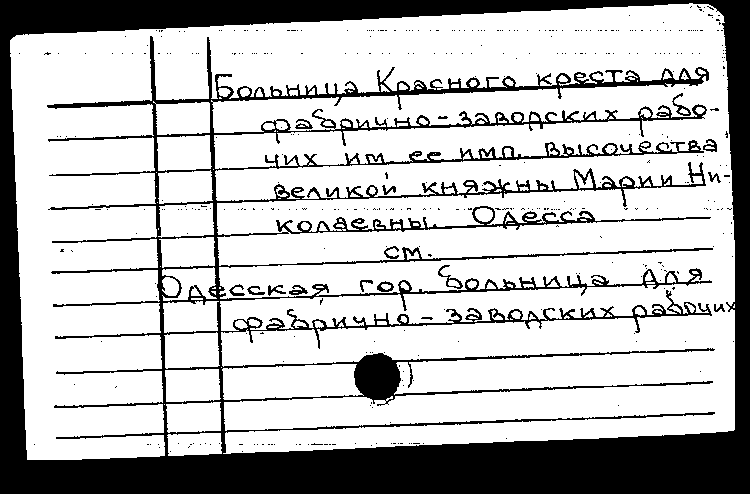 Больница Красного креста для
фабрично-заводских рабо-
чих им. ее имп. высочества
великой княжны Марии Ни-
колаевны. Одесса
см.
Одесская гор. больница для
фабрично-заводских рабочих